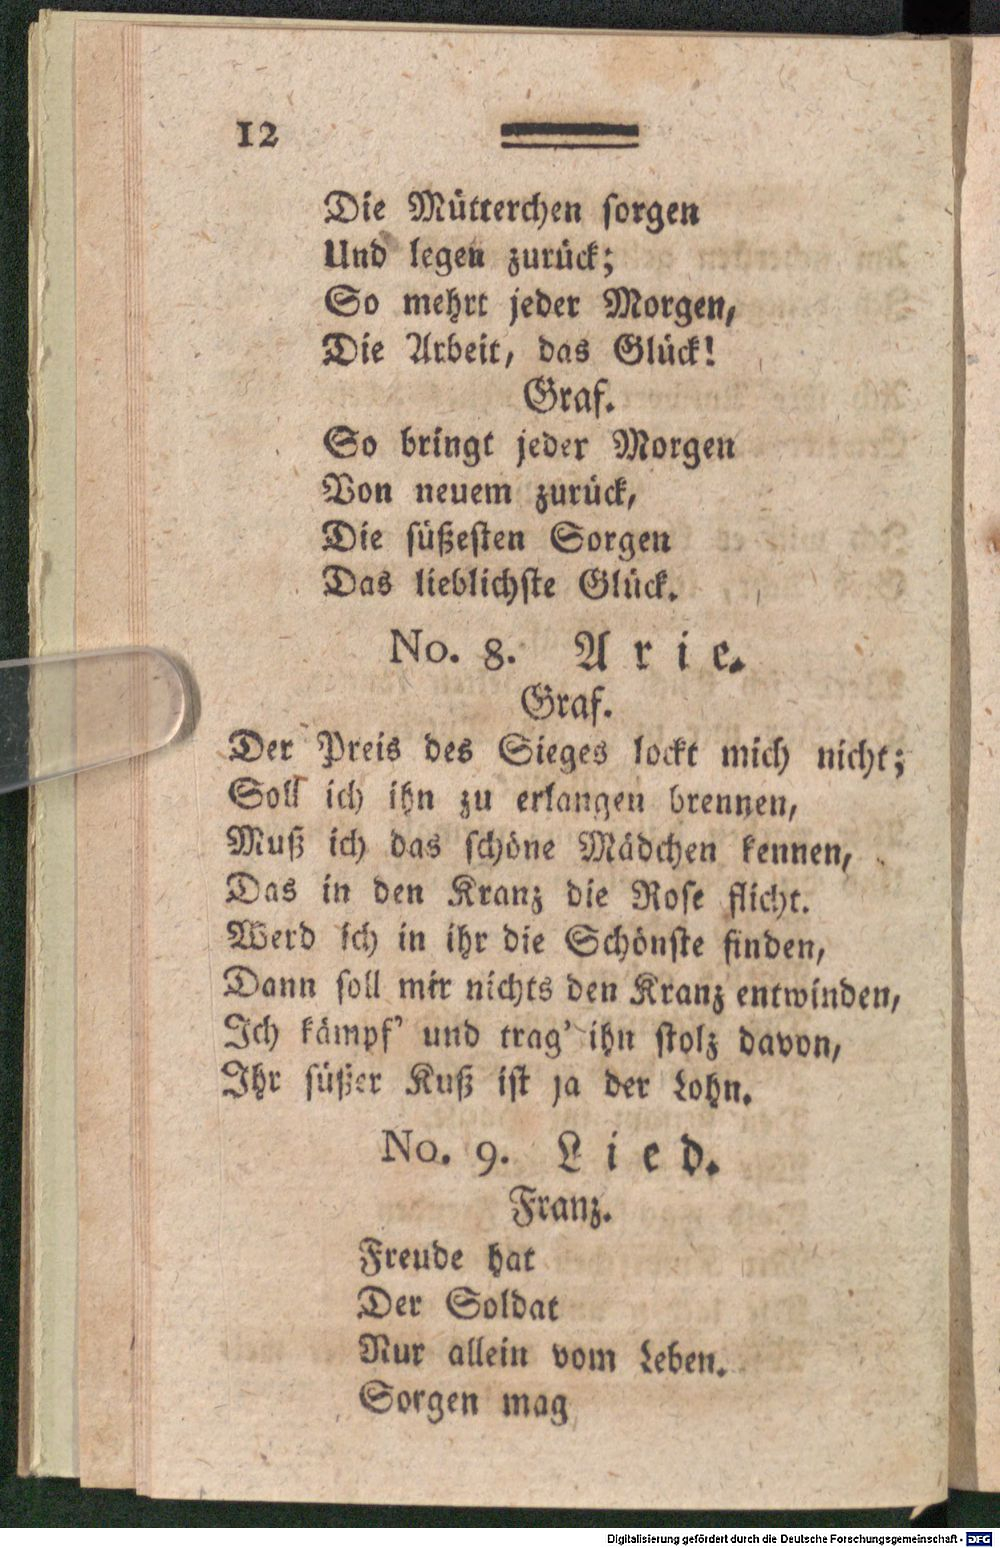 12
Die Mütterchen sorgen
Und legen zurück;
So mehrt jeder Morgen,
Die Arbeit, das Glück!
Graf.
So bringt jeder Morgen
Von neuem zurück,
Die süßesten Sorgen
Das lieblichste Glück.
No. 8. Arie.
Graf.
Der Preis des Sieges lockt mich nicht;
Soll ich ihn zu erlangen brennen,
Muß ich das schöne Mädchen kennen,
Das in den Kranz die Rose flicht.
Werd ich in ihr die Schönste finden,
Dann soll mir nichts den Kranz entwinden,
Ich kämpf’ und trag’ ihn stolz davon,
Ihr süßer Kuß ist ja der Lohn.
No. 9. Lied.
Franz.
Freude hat
Der Soldat
Nur allein vom Leben.
Sorgen mag
Digitalisierung gefördert durch die Deutsche Forschungsgemeinschaft - DFG